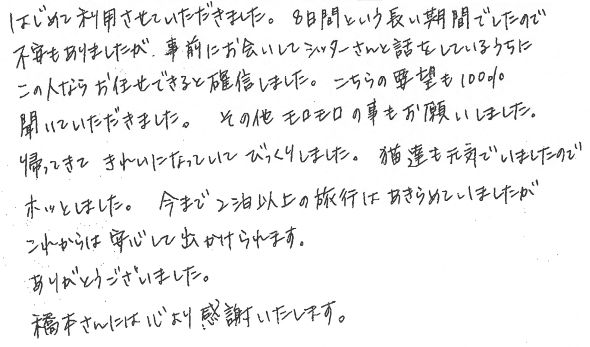 はじめて利用させていただきました。8日間という長い期間でしたので
不安もありましたが、事前にお会いしてシッターさんと話をしているうちに
この人ならお任せできると確信しました。こちらの要望も100%
聞いていただきました。その他モロモロの事もお願いしました。
帰ってきてきれいになっていてびっくりしました。猫達も元気でいましたので
ホッとしました。今まで2泊以上の旅行はあきらめていましたが
これからは安心して出かけられます。
ありがとうございました。
橋本さんには心より感謝いたします。